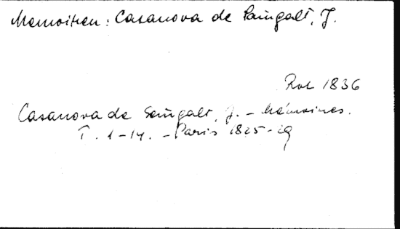 Memoiren: Casanova de Saingalt, J.
Rot 1836
Casanova de Seingalt, J. - Mémoires.
T. 1-14. - Paris 1825-29